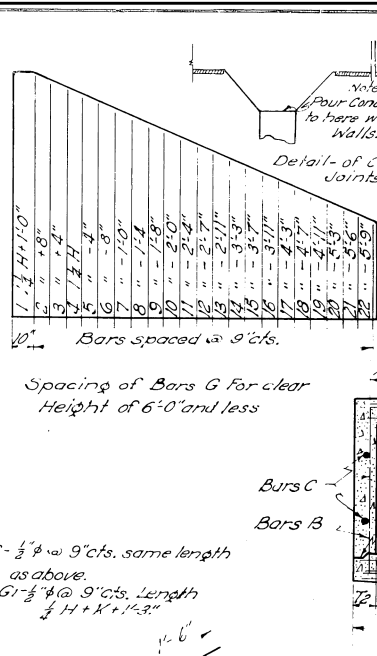 Note
Pour Conc
to here w
Walls.
Detail- of C
Joints
1 1¼ H+1'-0"
2 " +8"
3 " +4"
4 1¼ H
5 " -4"
6 " -8"
7 " -1'-0"
8 " -1'-4
9 " -1'-8"
10 " -2'-0"
11 " -2'-4"
12 " -2'-7"
13 " -2'-11"
14 " -3'-3"
15 " -3'-7"
16 " -3'-11"
17 " -4'-3"
18 " -4'-7"
19 " -4'-11"
20 " -5'-3"
21 " -5'-6"
22 " -5'-9"
10" Bars spaced @ 9"cts.
Spacing of Bars G For clear
Height of 6'-0" and less
Bars C
Bars B
- ½"φ @ 9"cts. same length
as above.
G1-½"φ @ 9"cts. Length
¼ H+K+1'-3"
T2
1'-6"